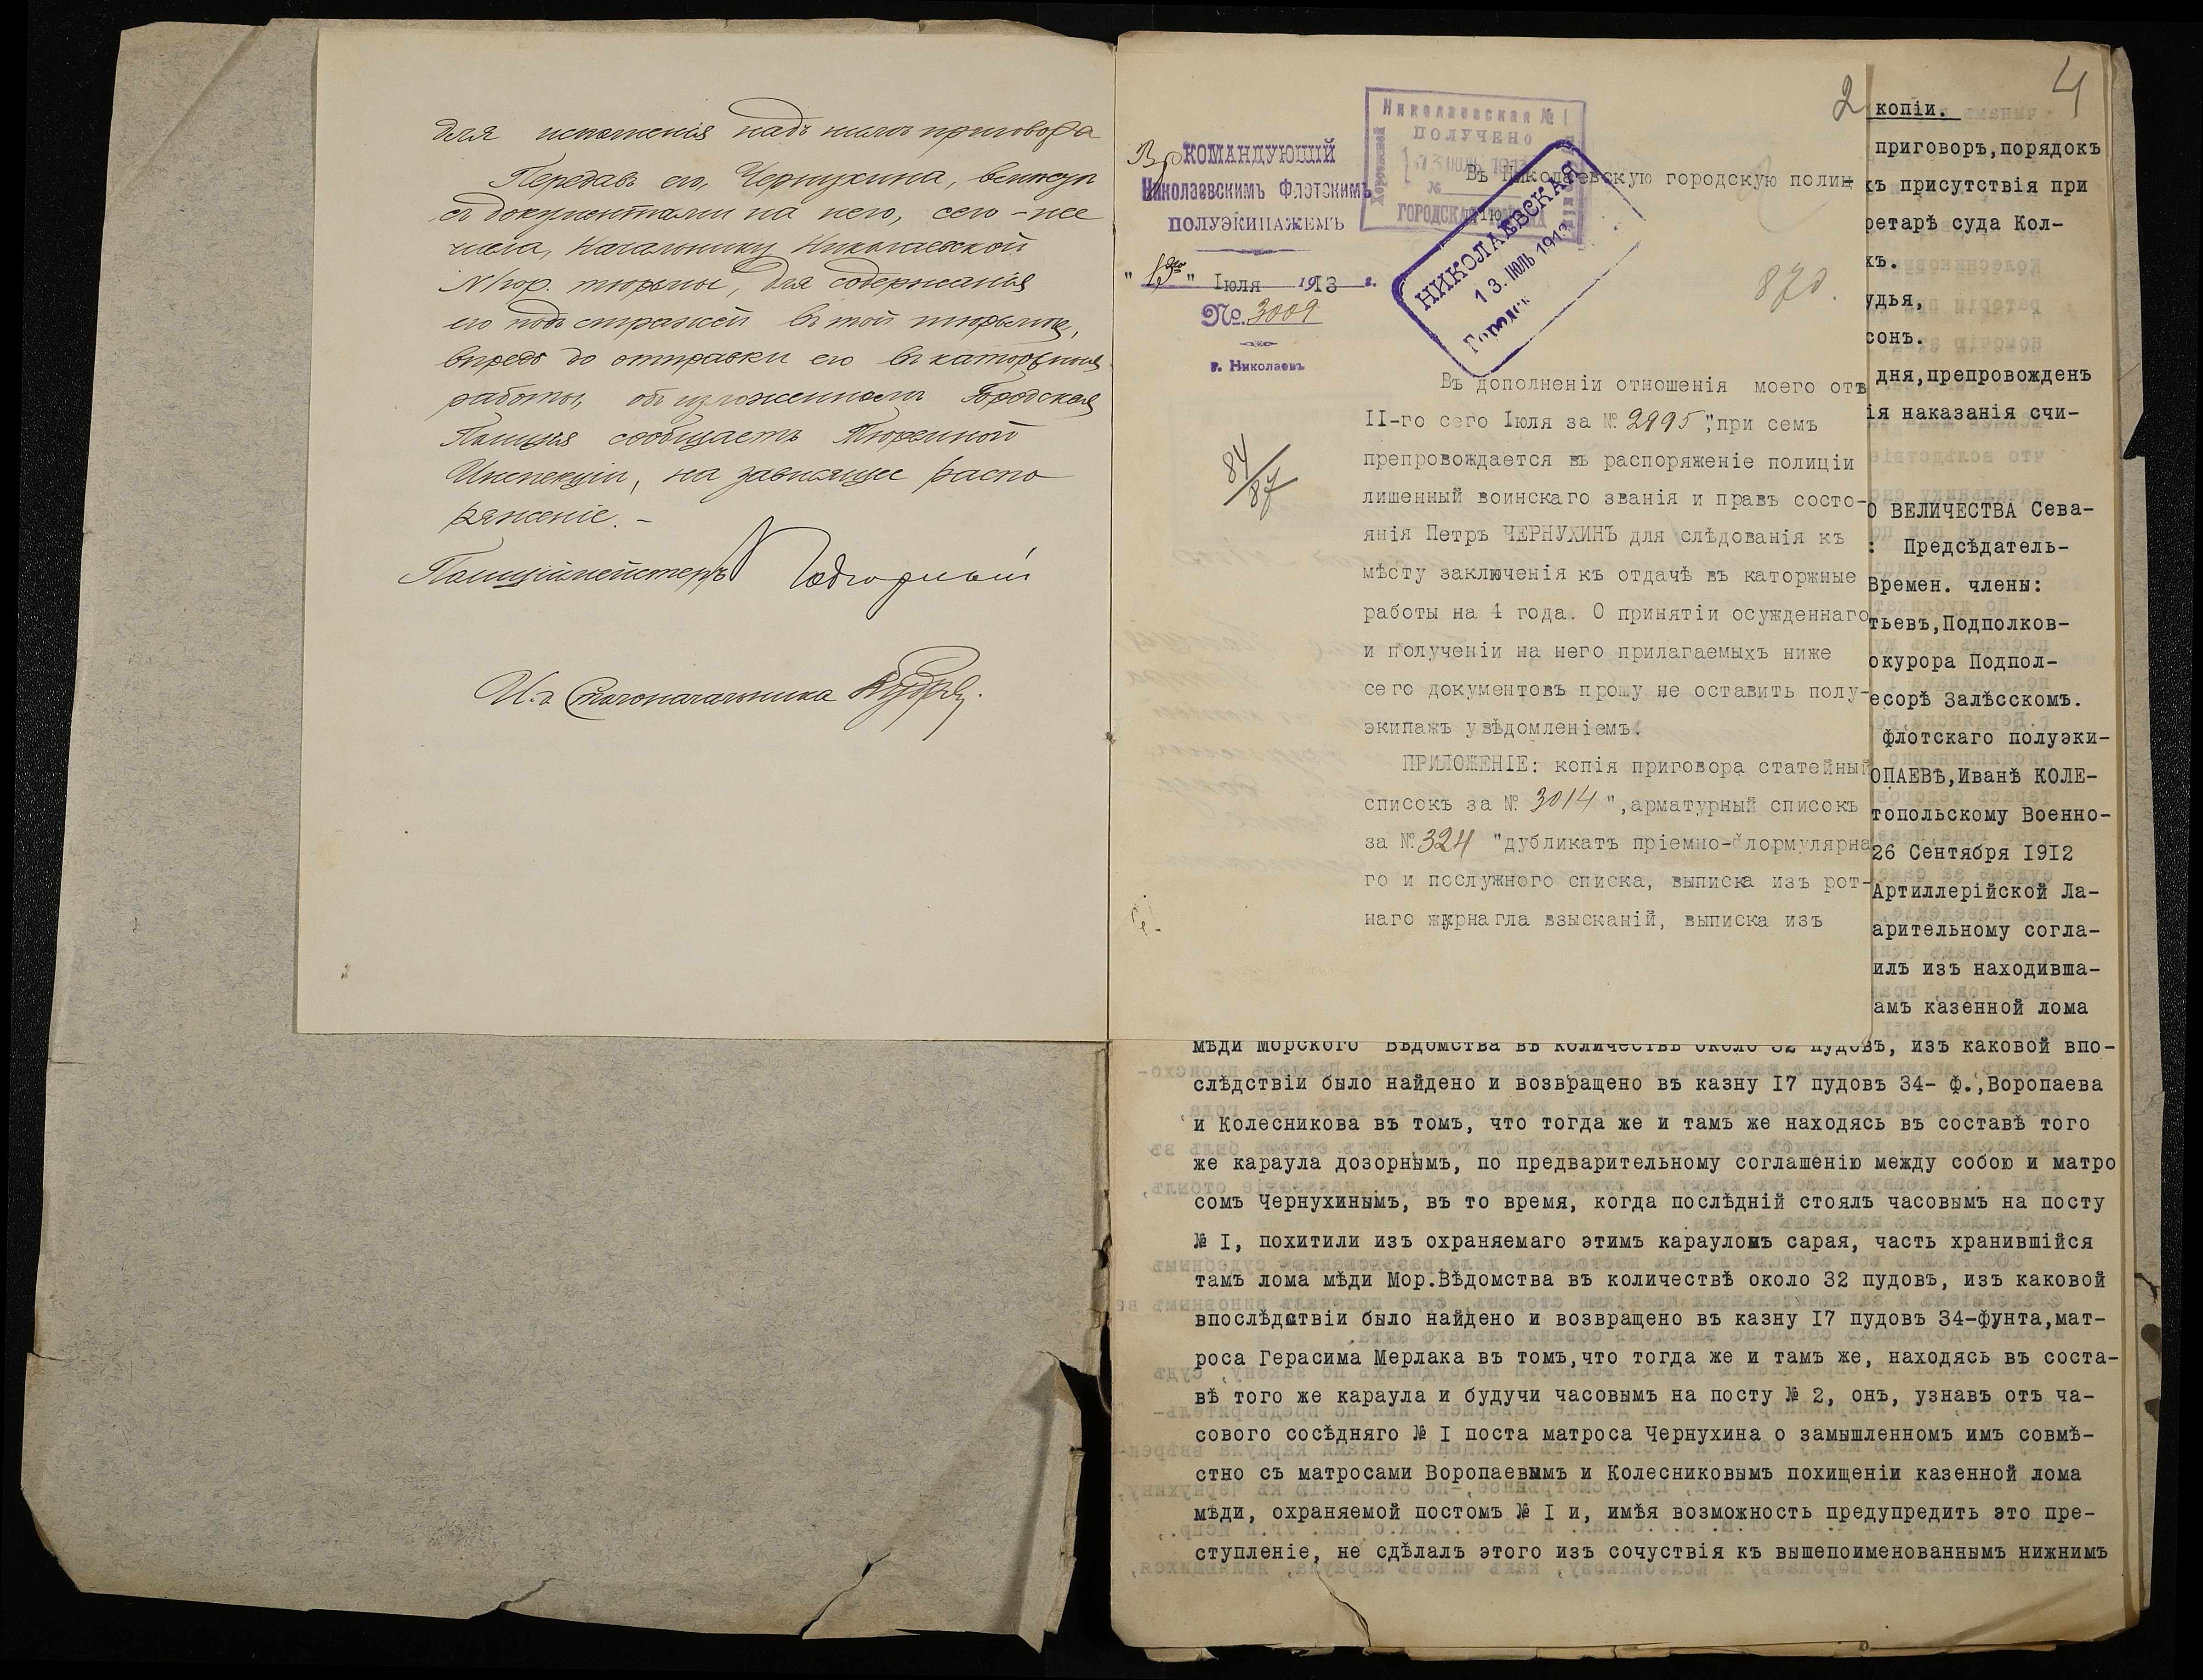 для исполненія надъ нимъ приговора
Передавъ его, Чернухина, вмѣстѣ
съ документами на него, сего-же
числа, Начальнику Николаевской
тюрьмы, для содержанія
его подъ стражей въ той тюрьмѣ,
впредь до отправки его въ каторжныя
работы, объ изложенномъ Городская
Полиція сообщаетъ Тюремной
Инспекціи, на зависящее распо
ряженіе. -
Полиціймейстеръ
И. д. Столоначальника
Вр КОМАНДУЮЩІЙ
Николаевскимъ Флотскимъ
ПОЛУЭКИПАЖЕМЪ
Іюля 1913 г.
№ 3009
г. Николаевъ
84/87
Николаевская № 1
ПОЛУЧЕНО
ІЮЛЬ 1913
№
ГОРОДСКАЯ
НИКОЛАЕВСКАЯ
13. ІЮЛЬ 1913
Городск
2
4
Въ Николаевскую городскую полиц-
ію
870.
Въ дополненіи отношенія моего отъ
II-го сего Іюля за № 2995", при семъ
препровождается въ распоряженіе полиціи
лишенный воинскаго званія и правъ состо-
янія Петръ ЧЕРНУХИНЪ для слѣдованія къ
мѣсту заключенія къ отдачѣ въ каторжные
работы на 4 года. О принятіи осужденнаго
и полученіи на него прилагаемыхъ ниже
сего документовъ прошу не оставить полу-
экипажъ увѣдомленіемъ.
ПРИЛОЖЕНІЕ: копія приговора статейный
списокъ за № 3014", арматурный списокъ
за № 324 "дубликатъ пріемно-формулярна
го и послужного списка, выписка изъ рот-
наго журнагла взысканій, выписка изъ
копіи.
приговоръ,порядокъ
хъ присутствія при
ретарѣ суда Кол-
хъ.
удья,
сонъ.
дня,препровожденъ
ія наказанія счи-
О ВЕЛИЧЕСТВА Сева-
: Предсѣдатель-
Времен. члены:
тьевъ,Подполков-
окурора Подпол-
есорѣ Залѣсскомъ.
флотскаго полуэки-
ОПАЕВѢ,Иванѣ КОЛЕ-
топольскому Военно-
26 Сентября I9I2
Артиллерійской Ла-
арительному согла-
илъ изъ находивша-
амъ казенной лома
мѣди Морского Вѣдомства въ количествѣ около 32 пудовъ, изъ каковой впо-
слѣдствіи было найдено и возвращено въ казну I7 пудовъ 34- ф.,Воропаева
и Колесникова въ томъ, что тогда же и тамъ же находясь въ составѣ того
же караула дозорнымъ, по предварительному соглашенію между собою и матро
сомъ Чернухинымъ, въ то время, когда послѣдній стоялъ часовымъ на посту
№ I, похитили изъ охраняемаго этимъ карауломъ сарая, часть хранившійся
тамъ лома мѣди Мор.Вѣдомства въ количествѣ около 32 пудовъ, изъ каковой
впослѣдствіи было найдено и возвращено въ казну I7 пудовъ 34-фунта,мат-
роса Герасима Мерлака въ томъ,что тогда же и тамъ же, находясь въ соста-
вѣ того же караула и будучи часовымъ на посту № 2, онъ, узнавъ отъ ча-
сового сосѣдняго № I поста матроса Чернухина о замышленномъ имъ совмѣ-
стно съ матросами Воропаевымъ и Колесниковымъ похищеніи казенной лома
мѣди, охраняемой постомъ № I и, имѣя возможность предупредить это пре-
ступленіе, не сдѣлалъ этого изъ сочуствія къ вышепоименованнымъ нижнимъ